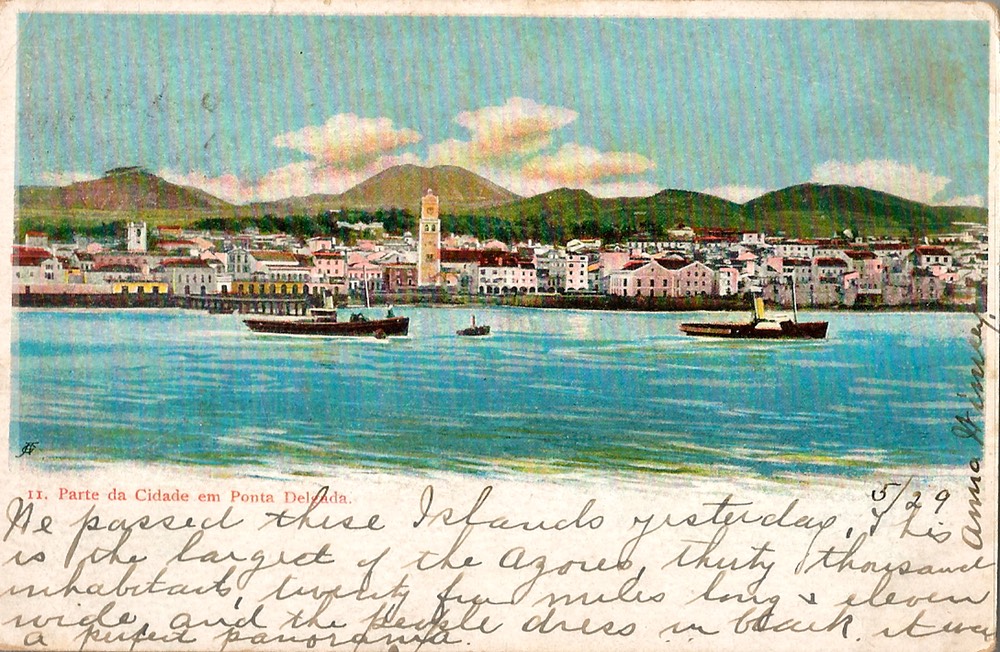 11. Parte da Cidade em Ponta Delgada.
5/29
We passed these Islands yesterday, this
is the largest of the Azores, thirty thousand
inhabitants, twenty five miles long & eleven
wide, and the people dress in black. it was
a perfect panorama.
Anna